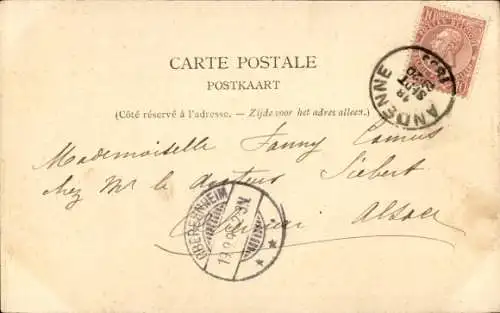 CARTE POSTALE
POSTKAART
(Côté réservé à l'adresse. — Zijde voor het adres alleen.)
ANDENNE
18
SEPT
1899
Mademoiselle Fanny Camus
chez Mr le docteur Siebert
Alsace
OBEREHNHEIM
19.9.9